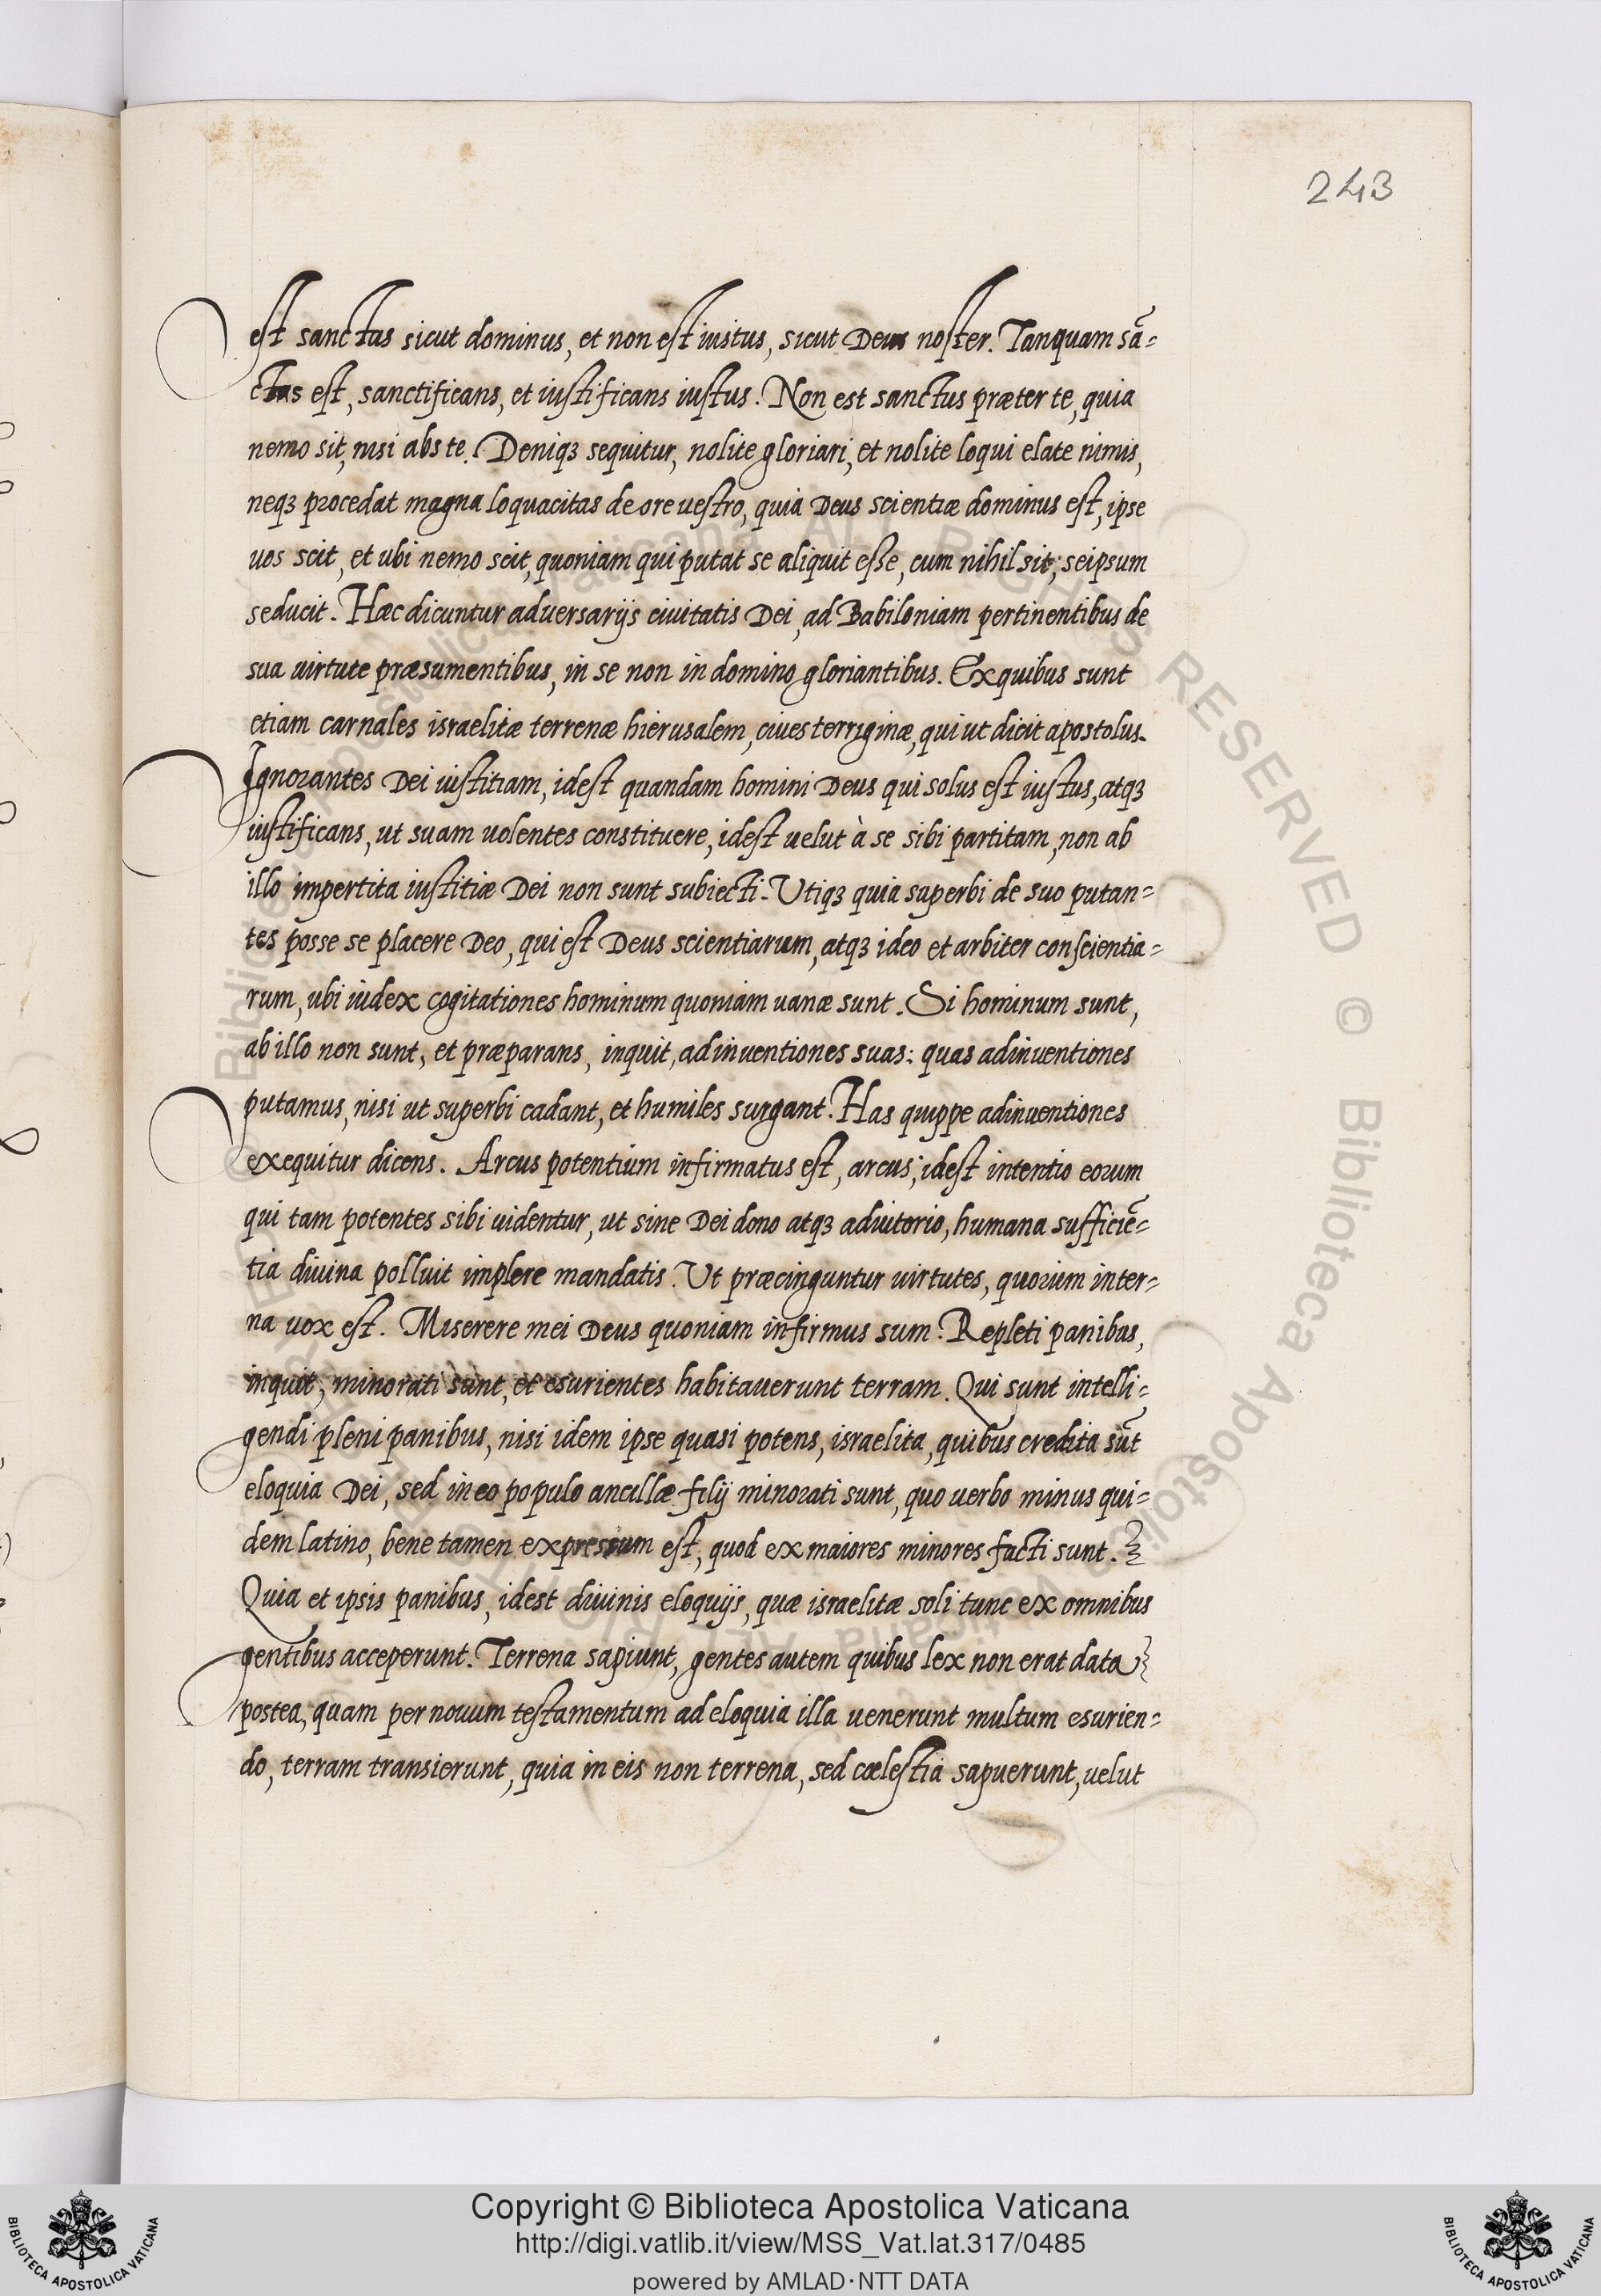 243
est sanctus sicut dominus, et non est iustus, sicut Deus noster. Tanquam sā=
ctus est, sanctificans, et iustificans iustus. Non est sanctus præter te, quia
nemo sit, nisi abs te. Deniqꝫ sequitur, nolite gloriari, et nolite loqui elate nimis,
neqꝫ procedat magna loquacitas de ore uestro, quia Deus scientiæ dominus est, ipse
uos scit, et ubi nemo scit, quoniam qui putat se aliquit esse, cum nihil sit; seipsum
seducit. Hæc dicuntur aduersarijs ciuitatis Dei, ad Babiloniam pertinentibus de
sua uirtute præsumentibus, in se non in domino gloriantibus. Ex quibus sunt
etiam carnales israelitæ terrenæ hierusalem, ciues terriginæ, qui ut dicit apostolus.
Ignorantes Dei iustitiam, idest quandam homini Deus qui solus est iustus, atqꝫ
iustificans, ut suam uolentes constituere, idest uelut à se sibi partitam, non ab
illo impertita iustitiæ Dei non sunt subiecti. Utiqꝫ quia superbi de suo putan=
tes posse se placere Deo, qui est Deus scientiarum, atqꝫ ideo et arbiter conscientia=
rum, ubi iudex cogitationes hominum quoniam uanæ sunt. Si hominum sunt,
ab illo non sunt, et præparans, inquit, adinuentiones suas: quas adinuentiones
putamus, nisi ut superbi cadant, et humiles surgant. Has quippe adinuentiones
exequitur dicens. Arcus potentium infirmatus est, arcus; idest intentio eorum
qui tam potentes sibi uidentur, ut sine Dei dono atqꝫ adiutorio, humana sufficiē=
tia diuina polluit implere mandatis. Ut præcinguntur uirtutes, quorum inter=
na uox est. Miserere mei Deus quoniam infirmus sum. Repleti panibus,
inquit, minorati sunt, et esurientes habitauerunt terram. Qui sunt intelli=
gendi pleni panibus, nisi idem ipse quasi potens, israelita, quibus credita sūt
eloquia Dei, sed in eo populo ancillæ filij minorati sunt, quo uerbo minus qui=
dem latino, bene tamen expressum est, quod ex maiores minores facti sunt.
Quia et ipsis panibus, idest diuinis eloquijs, quæ israelitæ soli tunc ex omnibus
gentibus acceperunt. Terrena sapiunt, gentes autem quibus lex non erat data
postea, quam per nouum testamentum ad eloquia illa uenerunt multum esurien=
do, terram transierunt, quia in eis non terrena, sed cœlestia sapuerunt, uelut
Copyright © Biblioteca Apostolica Vaticana
http://digi.vatlib.it/view/MSS_Vat.lat.317/0485
powered by AMLAD·NTT DATA